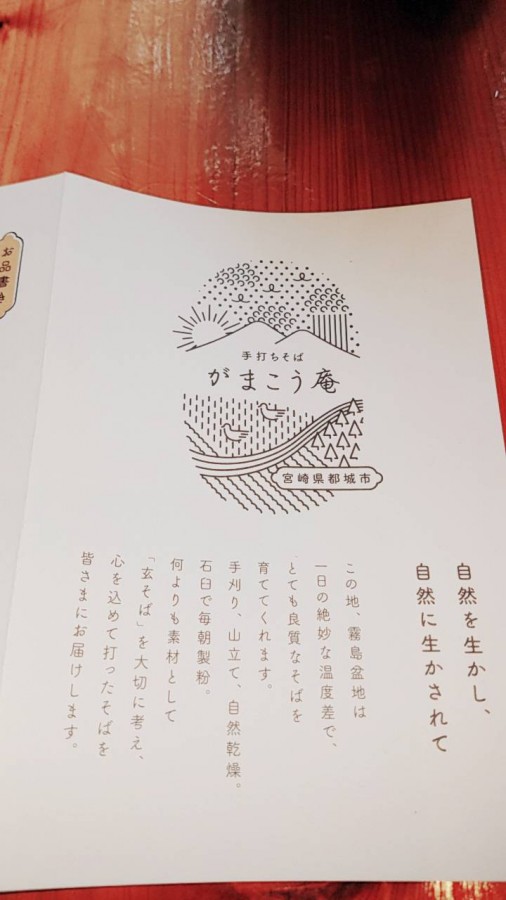 お品書き
手打ちそば
がまこう庵
宮崎県都城市
自然を生かし、
自然に生かされて
この地、霧島盆地は
一日の絶妙な温度差で、
とても良質なそばを
育ててくれます。
手刈り、山立て、自然乾燥。
石臼で毎朝製粉。
何よりも素材として
「玄そば」を大切に考え、
心を込めて打ったそばを
皆さまにお届けします。